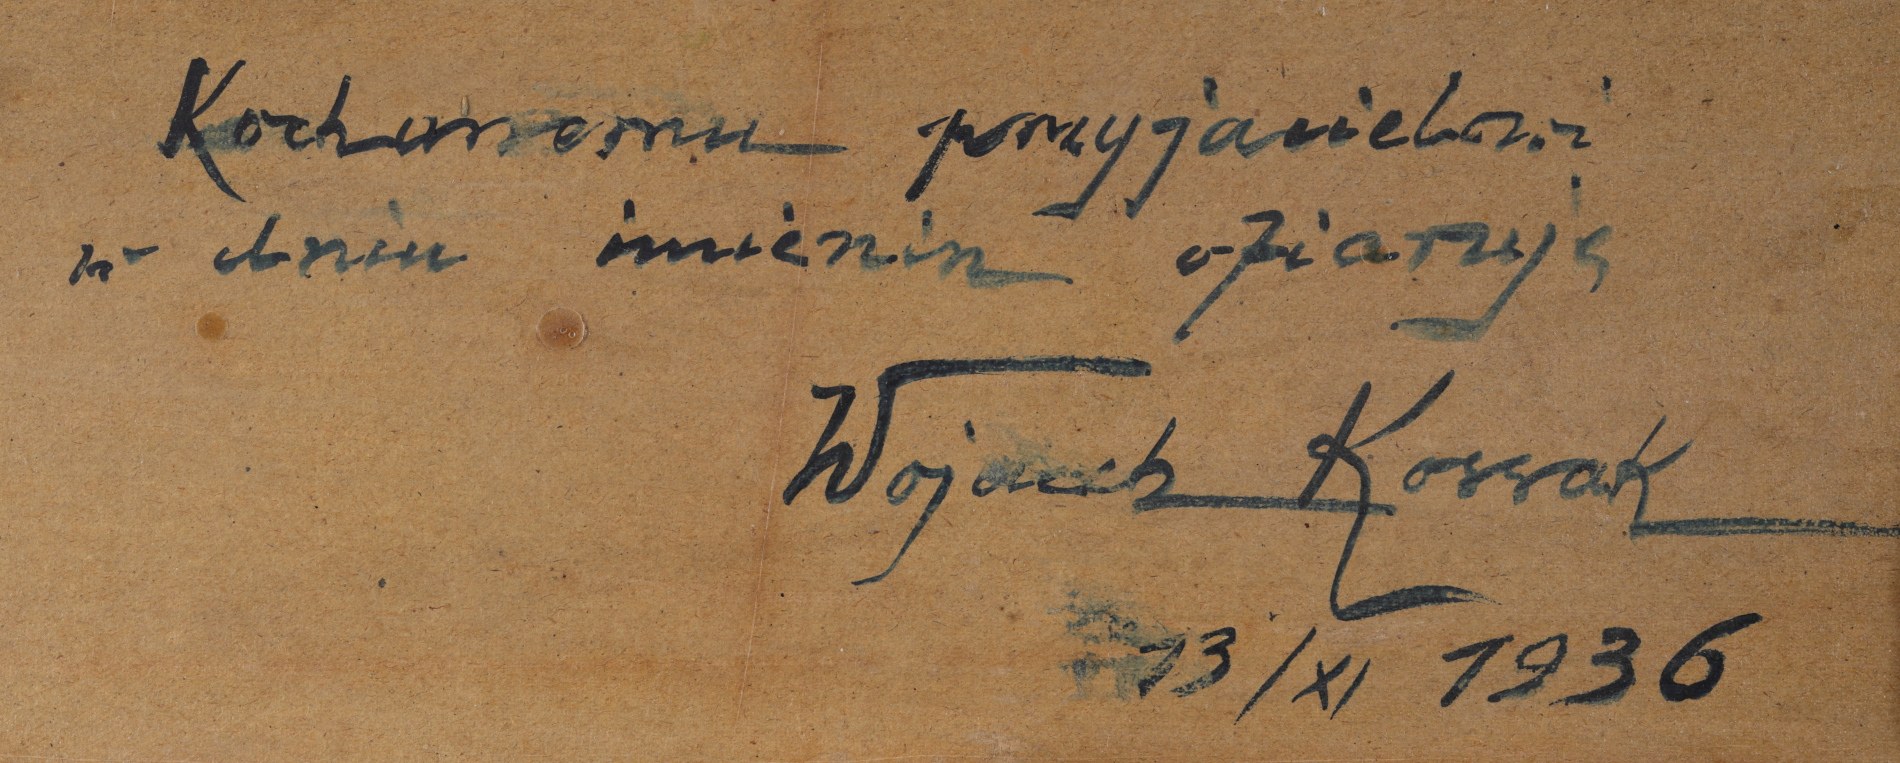 Kochanemu przyjacielowi
w dniu imienin ofiaruję
Wojciech Kossak
13/XI 1936